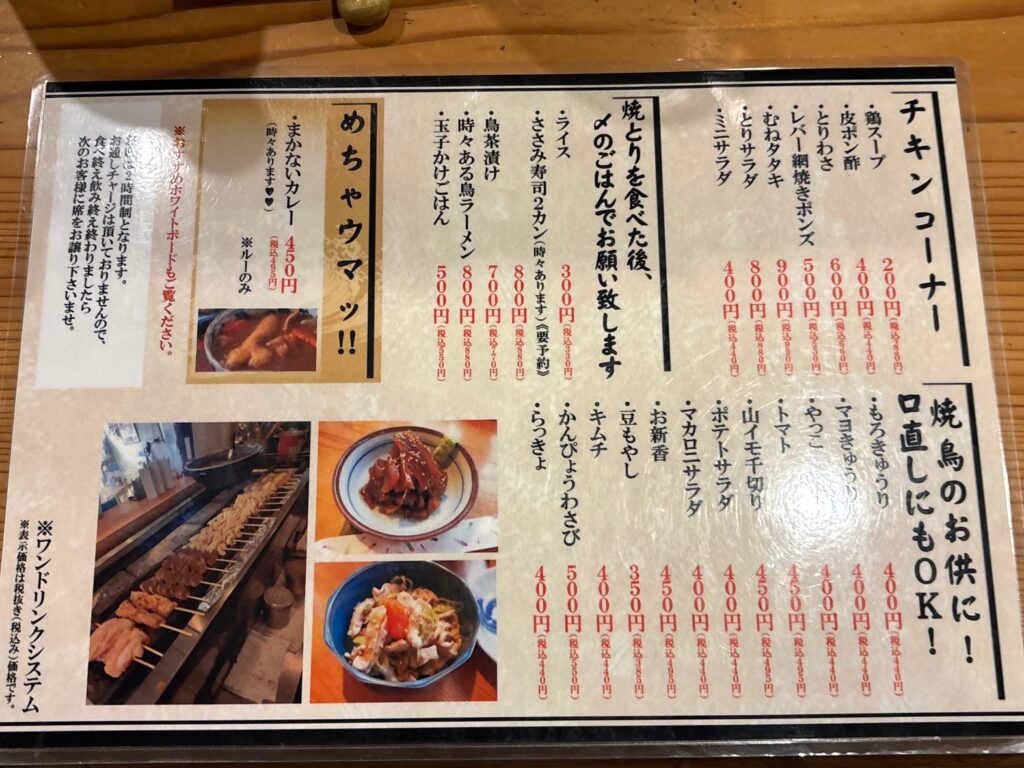 チキンコーナー
・鶏スープ 200円(税込220円)
・皮ポン酢 400円(税込440円)
・とりわさ 600円(税込660円)
・レバー網焼きポンズ 500円(税込550円)
・むねタタキ 900円(税込990円)
・とりサラダ 800円(税込880円)
・ミニサラダ 400円(税込440円)
焼とりを食べた後、
〆のごはんでお願い致します
・ライス 300円(税込330円)
・ささみ寿司2カン(時々あります)《要予約》 800円(税込880円)
・鳥茶漬け 700円(税込770円)
・時々ある鳥ラーメン 800円(税込880円)
・玉子かけごはん 500円(税込550円)
めちゃウマッ!!
・まかないカレー 450円(税込495円)
(時々あります♥♥)
※ルーのみ
のホワイトボードもご覧ください。
2時間制となります。
お通しチャージは頂いておりませんので、
食べ終え飲み終え終わりましたら
次のお客様に席をお譲り下さいませ。
焼鳥のお供に!
口直しにもOK!
・もろきゅうり 400円(税込440円)
・マヨきゅうり 400円(税込440円)
・やっこ 400円(税込440円)
・トマト 450円(税込495円)
・山イモ千切り 450円(税込495円)
・ポテトサラダ 400円(税込440円)
・マカロニサラダ 400円(税込440円)
・お新香 450円(税込495円)
・豆もやし 350円(税込385円)
・キムチ 400円(税込440円)
・かんぴょうわさび 500円(税込550円)
・らっきょ 400円(税込440円)
※ワンドリンクシステム
※表示価格は税抜き(税込み)価格です。